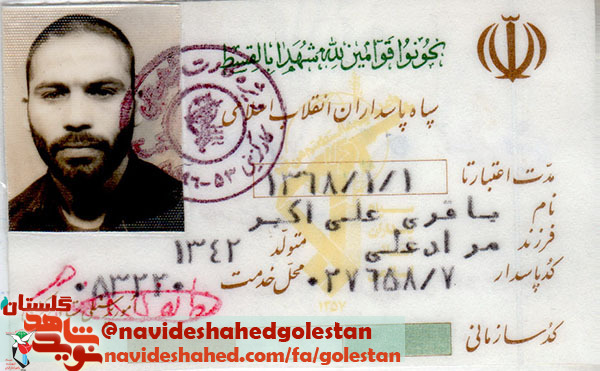 کونوا قوامین لله شهدا بالقسط
سپاه پاسداران انقلاب اسلامی
مدت اعتبار تا ۱۳۶۸/۱/۱
نام باقری علی اکبر
فرزند مرادعلی متولد ۱۳۴۲
کد پاسدار ۰۲۷۶۵۸/۷ محل خدمت ۰۵۳۲۲۰
کد سازمانی
۱۳۵۷
نوید شاهد گلستان
@navideshahedgolestan
navideshahed.com/fa/golestan